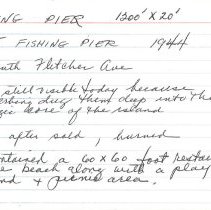 NG PIER 1200' X 20'
FISHING PIER 1944
uth Fletcher Ave
still visible today because
esting dug them deep into the
gic core of the island
after sold, burned
ntained a 60 x 60 foot restau
e beach along with a play
nd & picnic area.